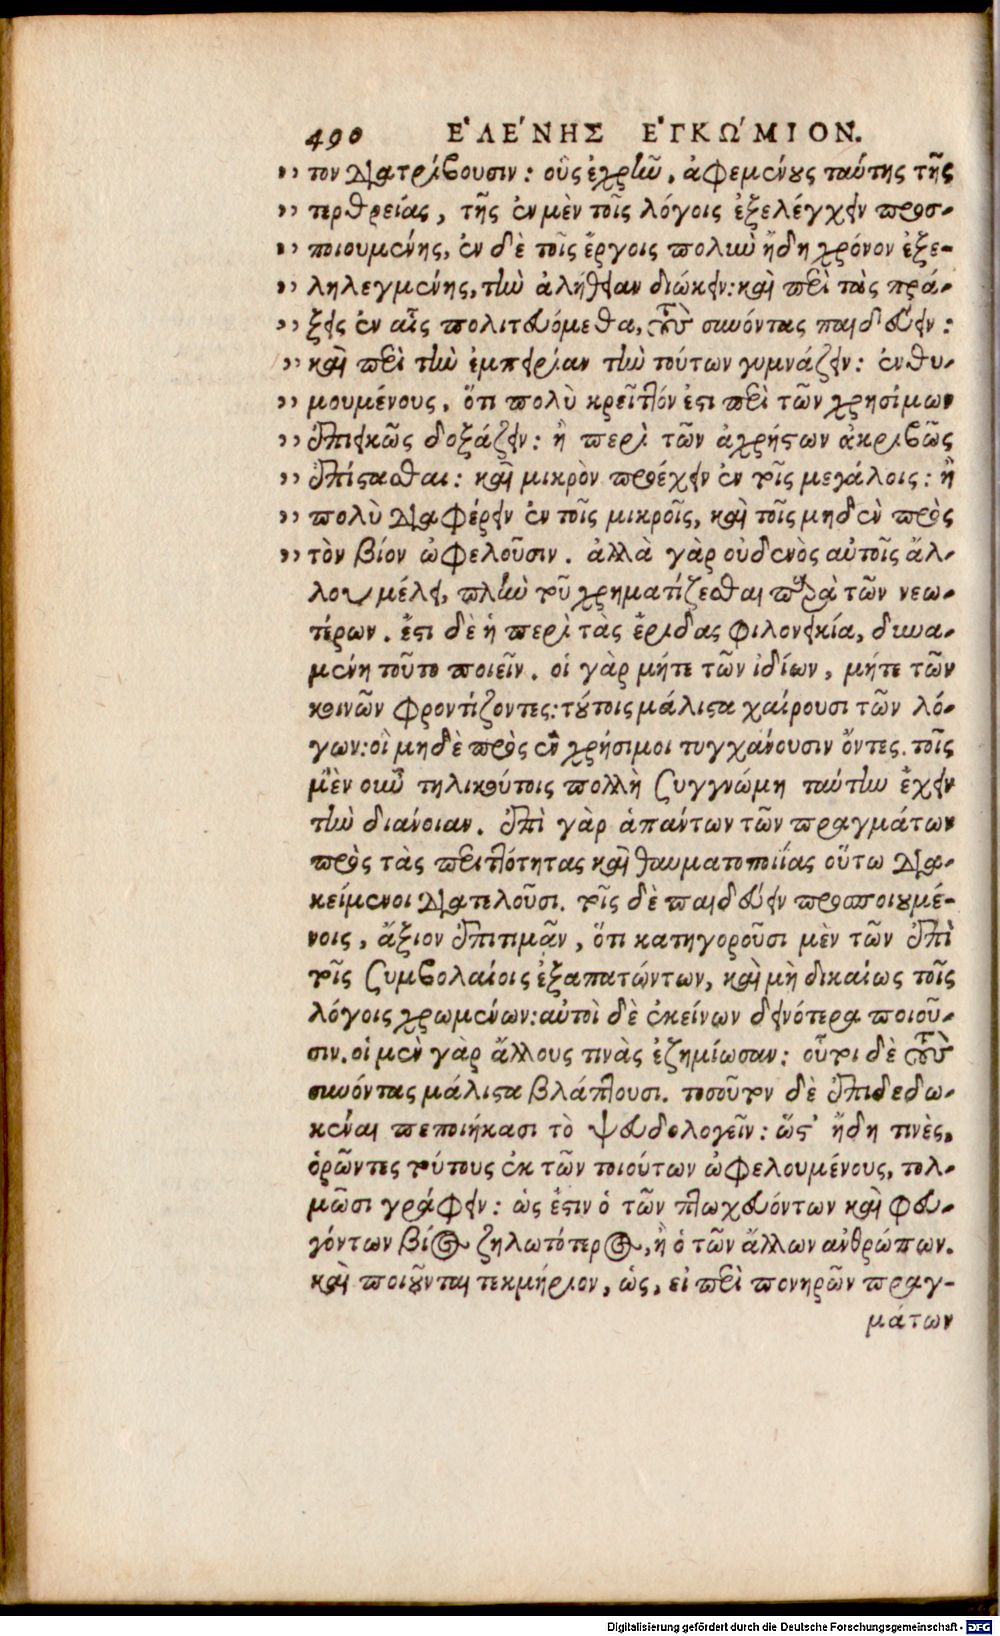 490 ΕἘΛΕΝΗΣ ἘΓΚΩΜΙΟΝ.
„ τον διατρίβουσιν: οὓς ἐχρῆν, ἀφεμένους ταύτης τῆς
„ τερθρείας, τῆς ἐν μὲν τοῖς λόγοις ἐξελέγχειν προσ-
„ ποιουμένης, ἐν δὲ τοῖς ἔργοις πολὺν ἤδη χρόνον ἐξε-
„ ληλεγμένης, τὴν ἀλήθειαν διώκειν: καὶ περὶ τὰς πρά-
„ ξεις ἐν αἷς πολιτευόμεθα, τοὺς συνόντας παιδεύειν:
„ καὶ περὶ τὴν ἐμπειρίαν τὴν τούτων γυμνάζειν: ἐνθυ-
„ μουμένους, ὅτι πολὺ κρεῖττόν ἐστι περὶ τῶν χρησίμων
„ ἐπιεικῶς δοξάζειν: ἢ περὶ τῶν ἀχρήστων ἀκριβῶς
„ ἐπίστασθαι: καὶ μικρὸν προέχειν ἐν τοῖς μεγάλοις: ἢ
„ πολὺ διαφέρειν ἐν τοῖς μικροῖς, καὶ τοῖς μηδὲν πρὸς
„ τὸν βίον ὠφελοῦσιν. ἀλλὰ γὰρ οὐδενὸς αὐτοῖς ἄλ-
λου μέλει, πλὴν τοῦ χρηματίζεσθαι παρὰ τῶν νεω-
τέρων. ἔστι δὲ ἡ περὶ τὰς ἔριδας φιλονεικία, δυνα-
μένη τοῦτο ποιεῖν. οἱ γὰρ μήτε τῶν ἰδίων, μήτε τῶν
κοινῶν φροντίζοντες: τούτοις μάλιστα χαίρουσι τῶν λό-
γων: οἳ μηδὲ πρὸς ἓν χρήσιμοι τυγχάνουσιν ὄντες. τοῖς
μὲν οὖν τηλικούτοις πολλὴ ξυγγνώμη ταύτην ἔχειν
τὴν διάνοιαν. ἐπὶ γὰρ ἁπάντων τῶν πραγμάτων
πρὸς τὰς περιττότητας καὶ θαυματοποιΐας οὕτω δια-
κείμενοι διατελοῦσι. τοῖς δὲ παιδεύειν προσποιουμέ-
νοις, ἄξιον ἐπιτιμᾶν, ὅτι κατηγοροῦσι μὲν τῶν ἐπὶ
τοῖς ξυμβολαίοις ἐξαπατώντων, καὶ μὴ δικαίως τοῖς
λόγοις χρωμένων: αὐτοὶ δὲ ἐκείνων δεινότερα ποιοῦ-
σιν. οἱ μὲν γὰρ ἄλλους τινὰς ἐζημίωσαν: οὗτοι δὲ τοὺς
συνόντας μάλιστα βλάπτουσι. τοσοῦτον δὲ ἐπιδεδω-
κέναι πεποιήκασι τὸ ψευδολογεῖν: ὥστ' ἤδη τινὲς,
ὁρῶντες τούτους ἐκ τῶν τοιούτων ὠφελουμένους, τολ-
μῶσι γράφειν: ὡς ἔστιν ὁ τῶν πτωχευόντων καὶ φευ-
γόντων βίος ζηλωτότερος, ἢ ὁ τῶν ἄλλων ἀνθρώπων.
καὶ ποιοῦνται τεκμήριον, ὡς, εἰ περὶ πονηρῶν πραγ-
μάτων
Digitalisierung gefördert durch die Deutsche Forschungsgemeinschaft - DFG